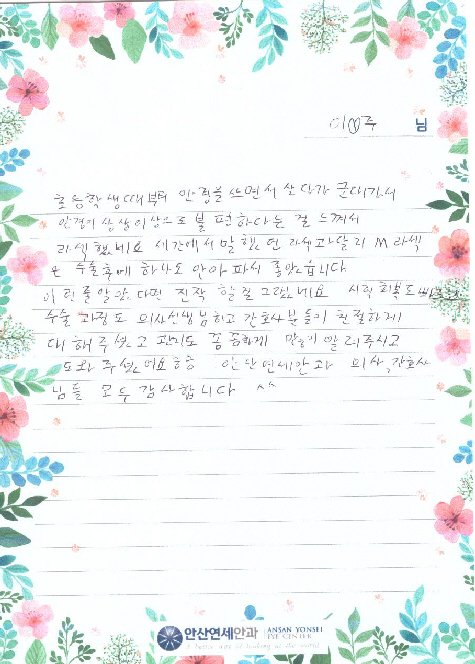 이○주 님
초등학생때부터 안경을 쓰면서 살다가 군대가서
안경이 상상이상으로 불편하다는 걸 느껴서
라섹했네요 세간에서 말했던 라섹과달리 M라섹
은 수술후에 하나도 안아파서 좋았습니다
이런줄알았다면 진작 할걸 그랬네요 시력 회복도
수술 과정도 의사선생님하고 간호사분들이 친절하게
대해주셨고 관리도 꼼꼼하게 알려주시고
도와주셨어요 안산연세안과 의사, 간호사
님들 모두 감사합니다 ^^
안산연세안과 ANSAN YONSEI
EYE CENTER
A better way of looking at the world